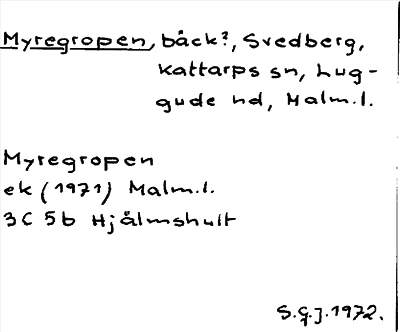 Myregropen, bäck?, Svedberg,
Kattarps sn, Lug-
gude hd, Malm.l.
Myregropen
ek (1971) Malm.l.
3C 5b Hjälmshult
S.G.J. 1972.